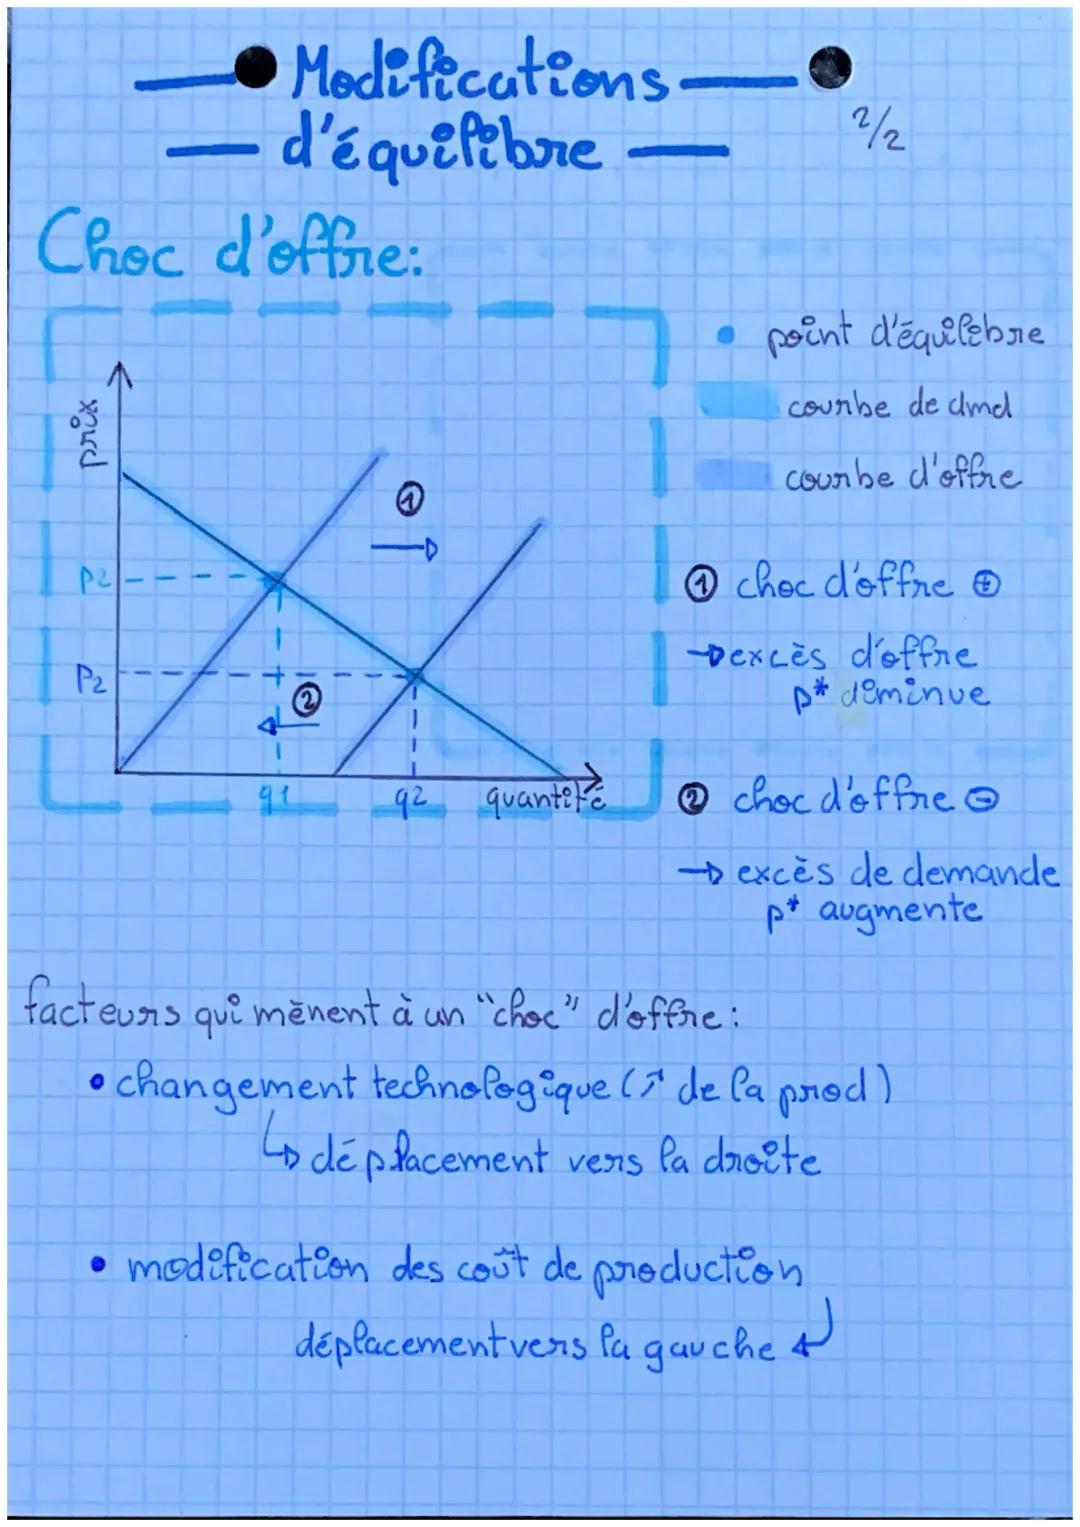 Modifications
d'équilibre
2/2
Choc d'offre:
prix
P2
P2
q1
q2
quantité
①
②
point d'équilibre
courbe de dmd
courbe d'offre
① choc d'offre ⊕
→ excès d'offre
p* diminue
② choc d'offre ⊖
→ excès de demande
p* augmente
facteurs qui mènent à un "choc" d'offre:
• changement technologique (↗ de la prod)
↳ déplacement vers la droite
• modification des coût de production
déplacement vers la gauche ↲